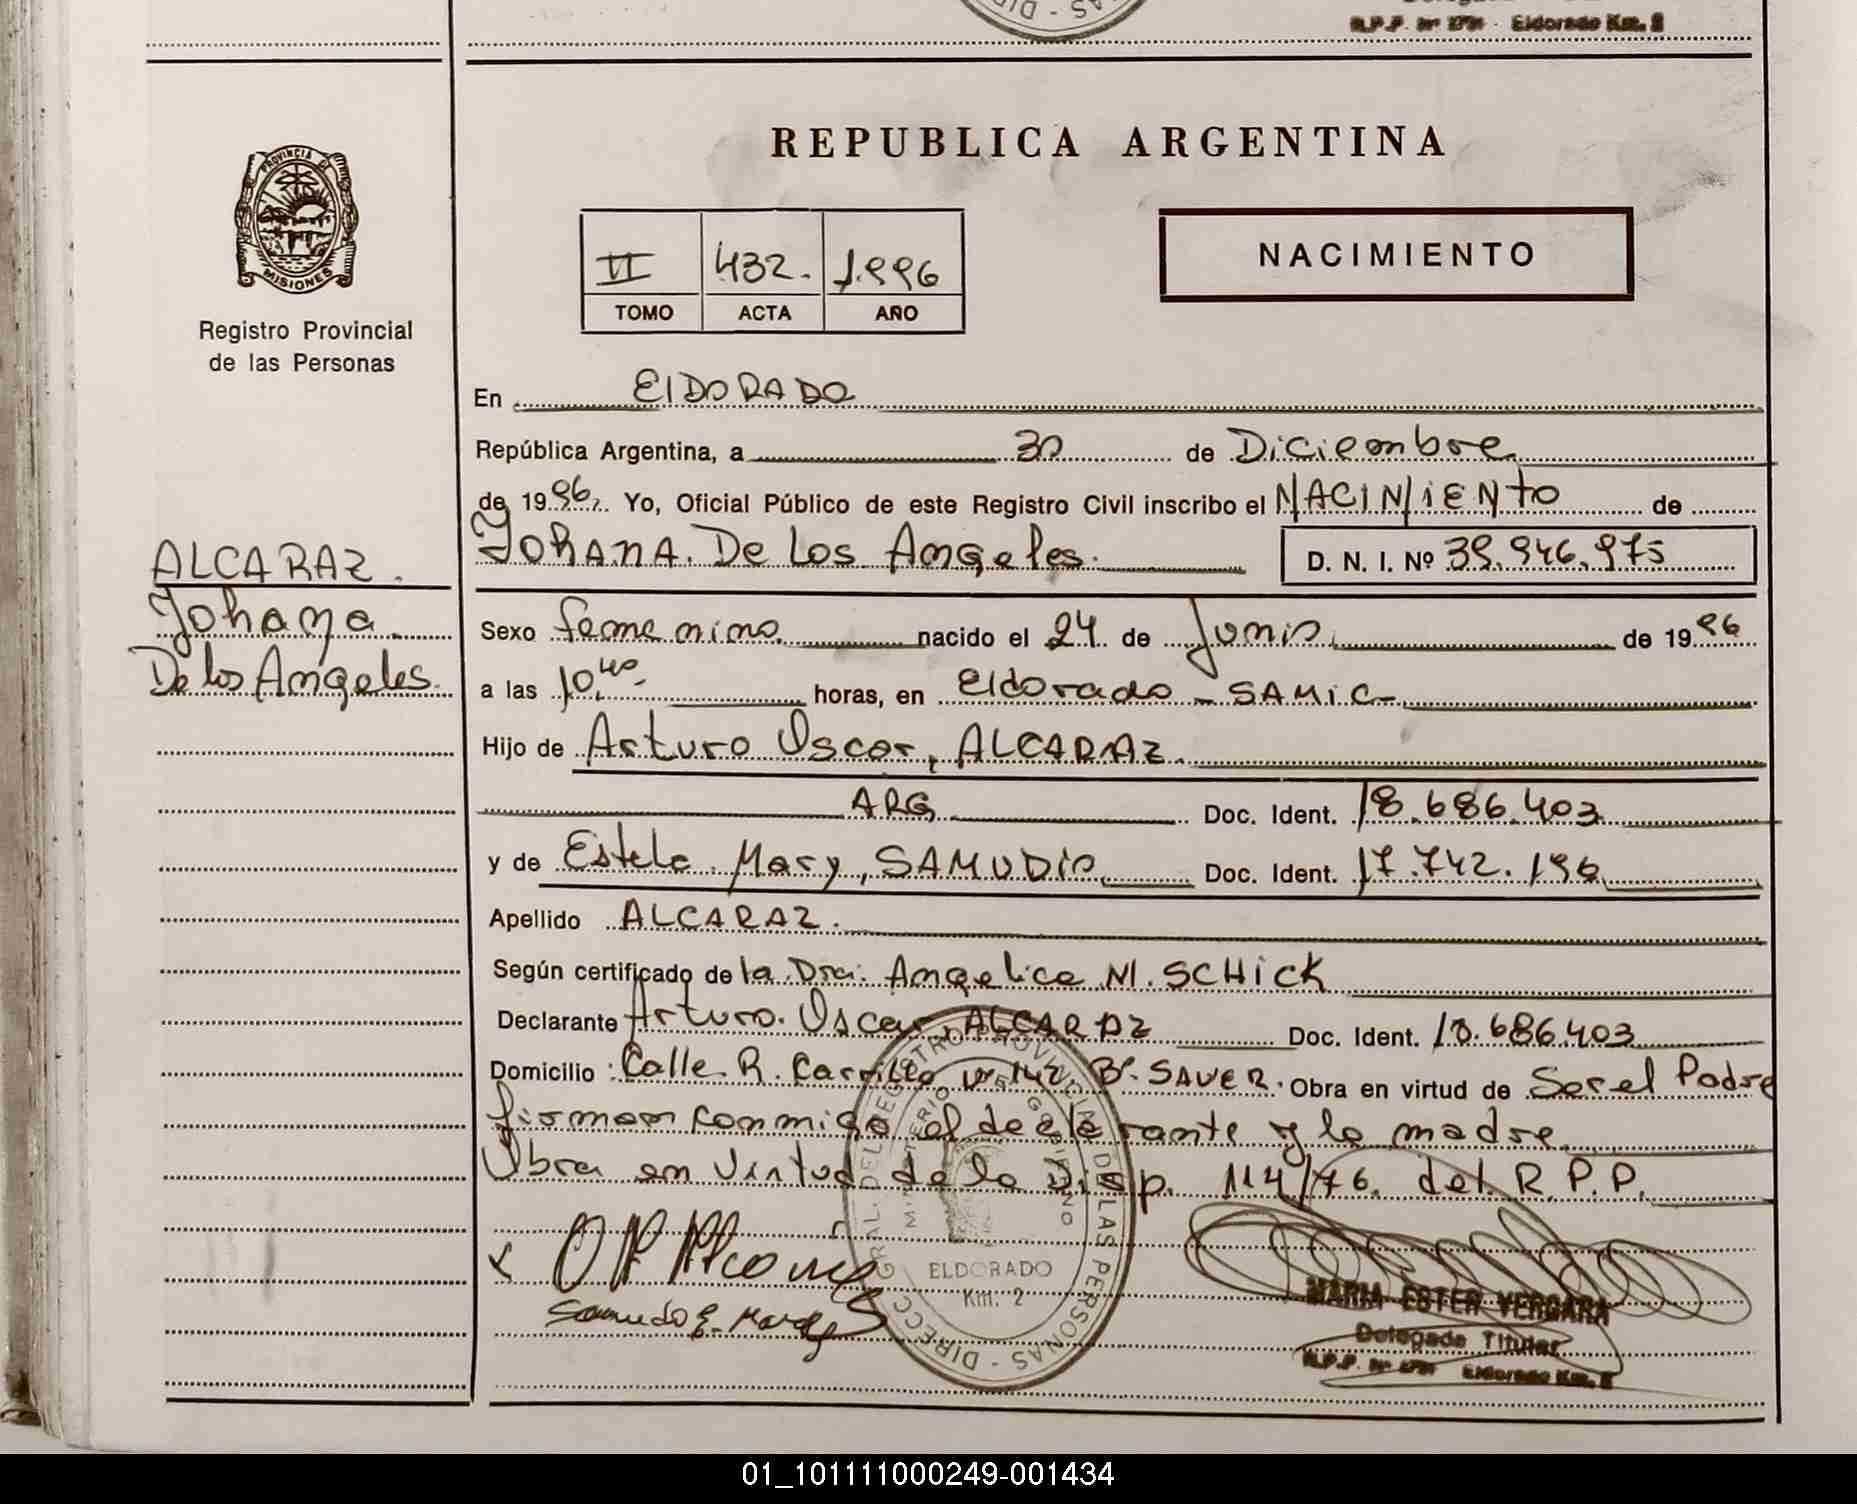 R.P.P. Nº Eldorado Km. 2
PROVINCIA DE MISIONES
Registro Provincial
de las Personas
ALCARAZ.
Johana
De los Angeles
REPUBLICA ARGENTINA
II 432. 1.996
TOMO ACTA AÑO
NACIMIENTO
En ElDORADO
República Argentina, a 30 de Diciembre
de 1996, Yo, Oficial Público de este Registro Civil inscribo el NACIMIENTO de
Johana. De los Angeles. D. N. I. Nº 39.946.975
Sexo femenino nacido el 24 de Junio de 1996
a las 10,40 horas, en Eldorado - SAMIC-
Hijo de Arturo Oscar, ALCARAZ.
ARG Doc. Ident. 18.686.403
y de Estela Mary, SAMUDIO Doc. Ident. 17.742.196
Apellido ALCARAZ.
Según certificado de la Dra. Angelica M. SCHICK
Declarante Arturo Oscar, ALCARAZ Doc. Ident. 18.686.403
Domicilio: Calle R. Carrillo Nº 142 Bº. SAUER. Obra en virtud de Ser el Padre
firman conmigo el declarante y la madre
Obra en Virtud de la Disp. 114/76. del R.P.P.
DIRECC. GRAL. DEL REGISTRO PROVINCIAL DE LAS PERSONAS
MINISTERIO DE GOBIERNO
ELDORADO
Km. 2
Samudio E. Mary
MARIA ESTER VERGARA
Delegada Titular
R.P.P. Nº Eldorado Km. 2
01_101111000249-001434